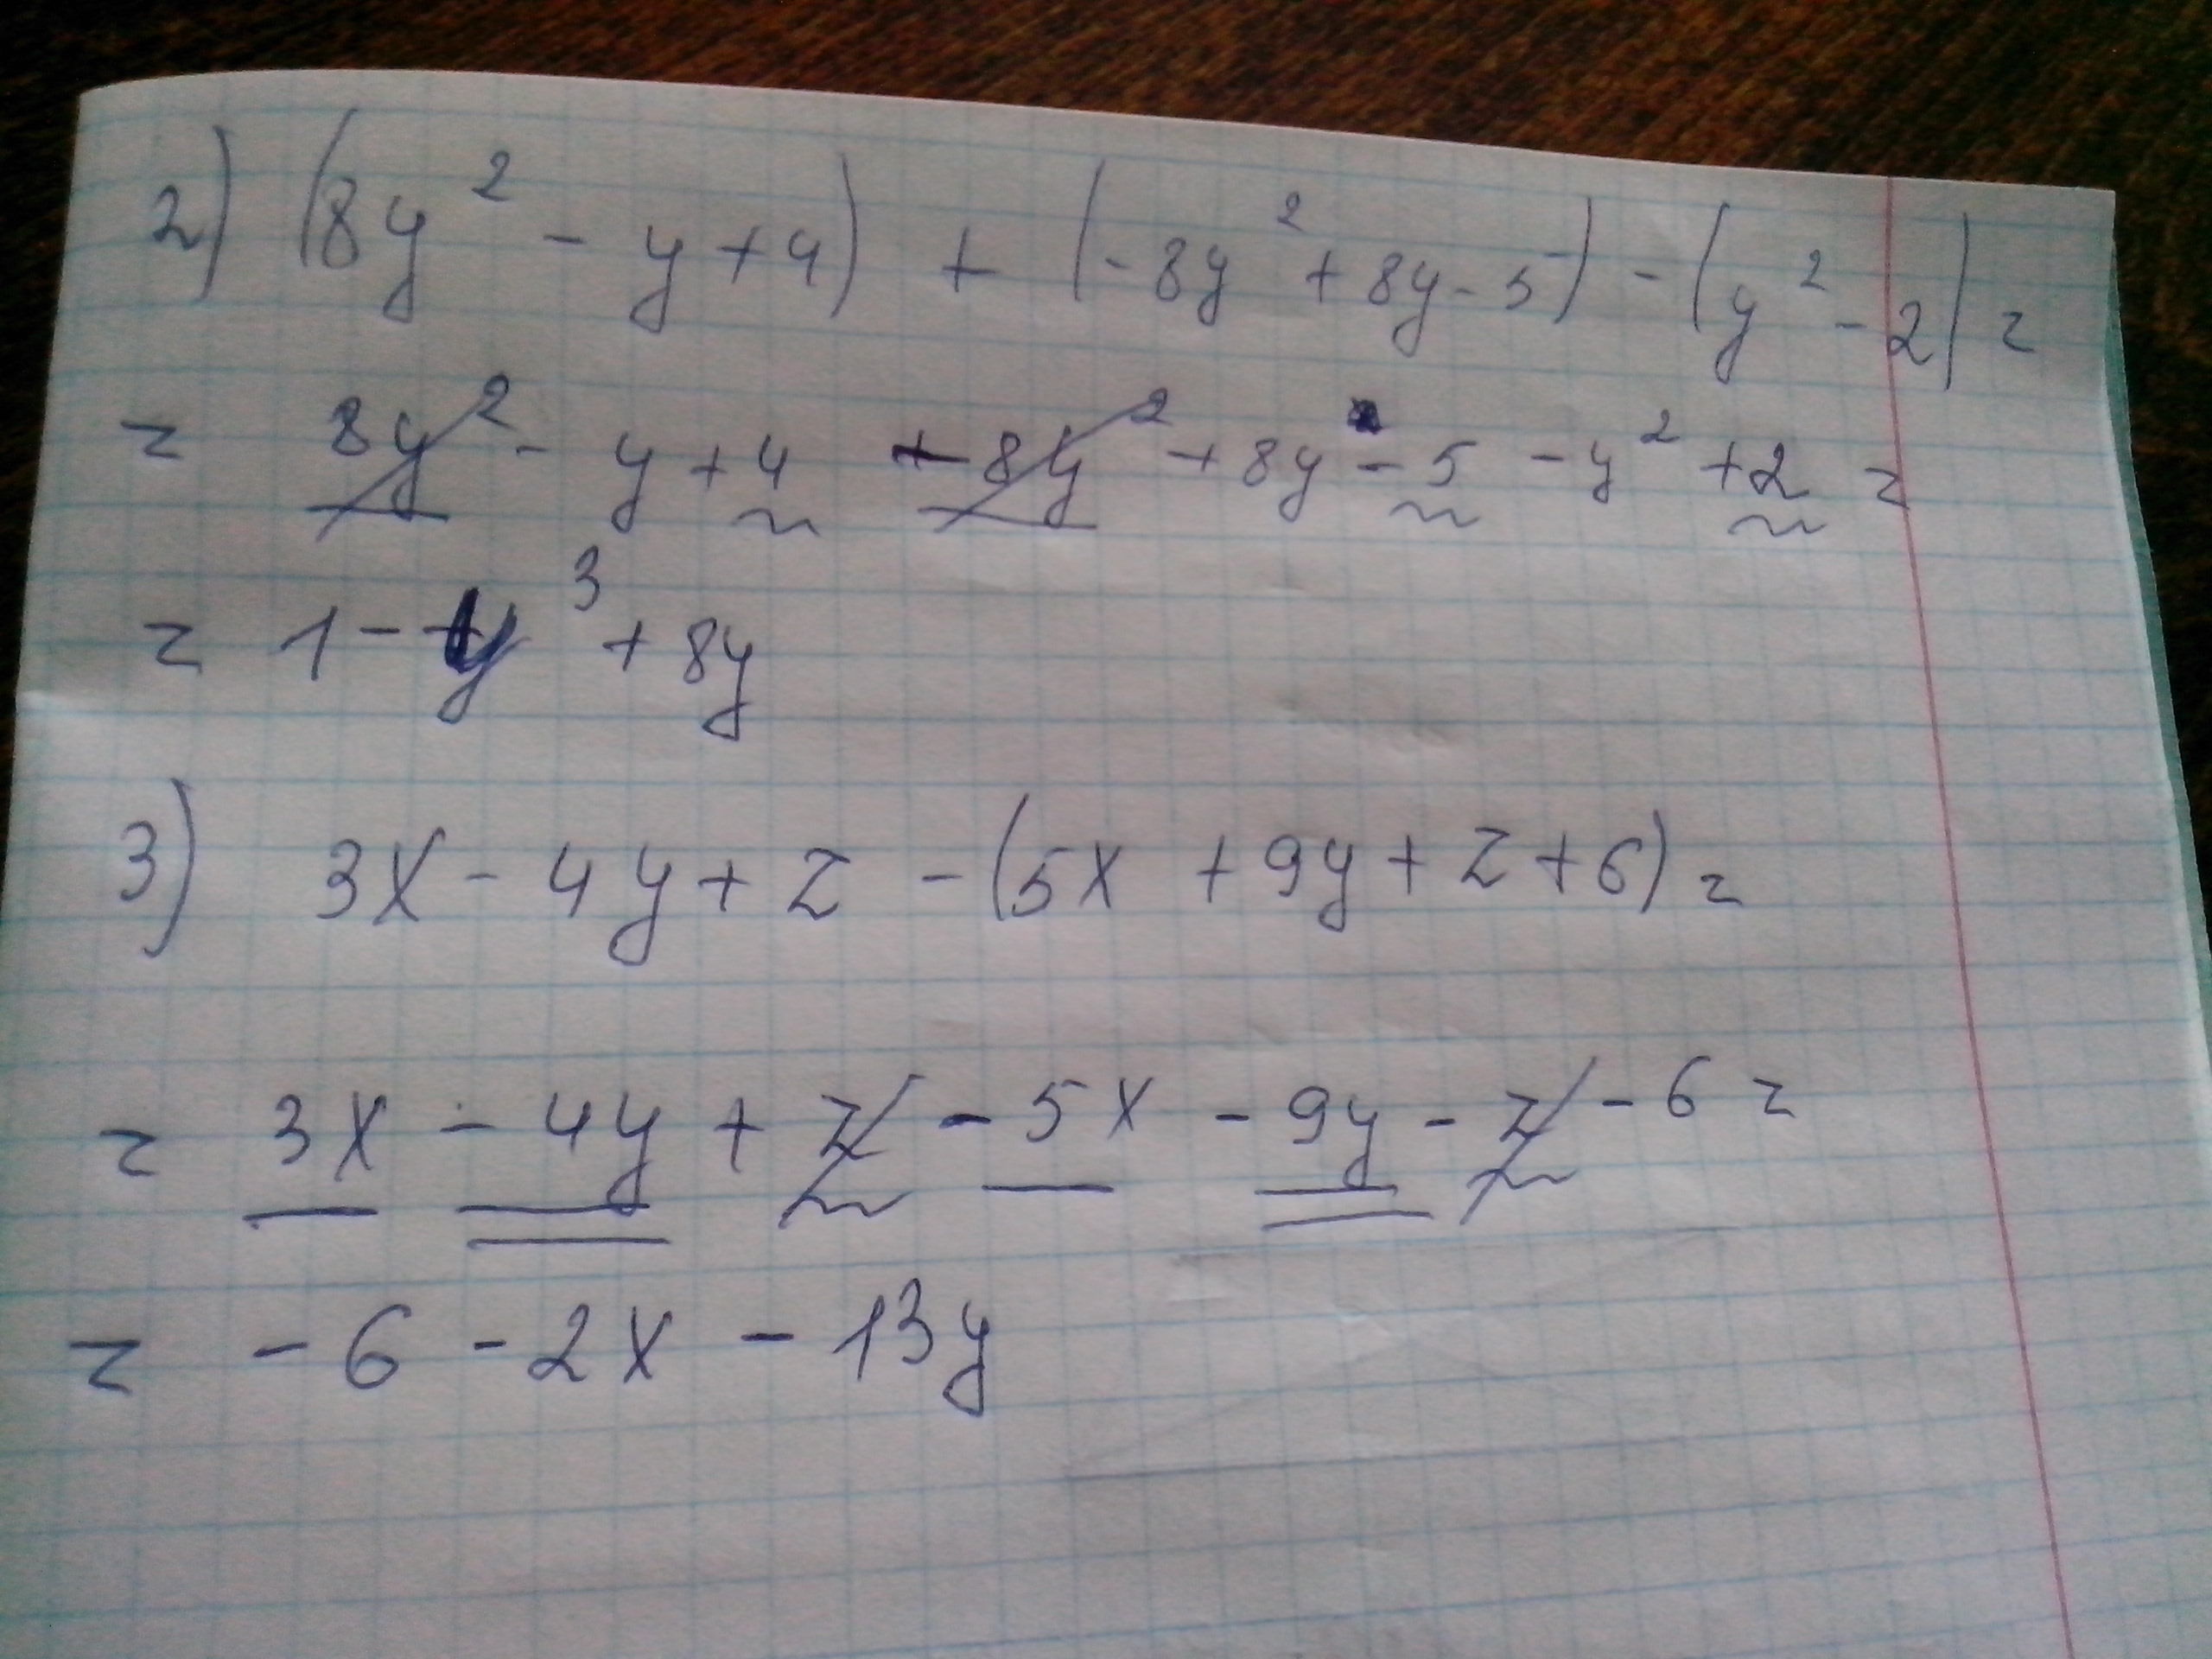 2) (8y² - y + 4) + (-8y² + 8y - 5) - (y² - 2) =
= 8y² - y + 4 - 8y² + 8y - 5 - y² + 2 =
= 1 - y³ + 8y
3) 3x - 4y + z - (5x + 9y + z + 6) =
= 3x - 4y + z - 5x - 9y - z - 6 =
= - 6 - 2x - 13y